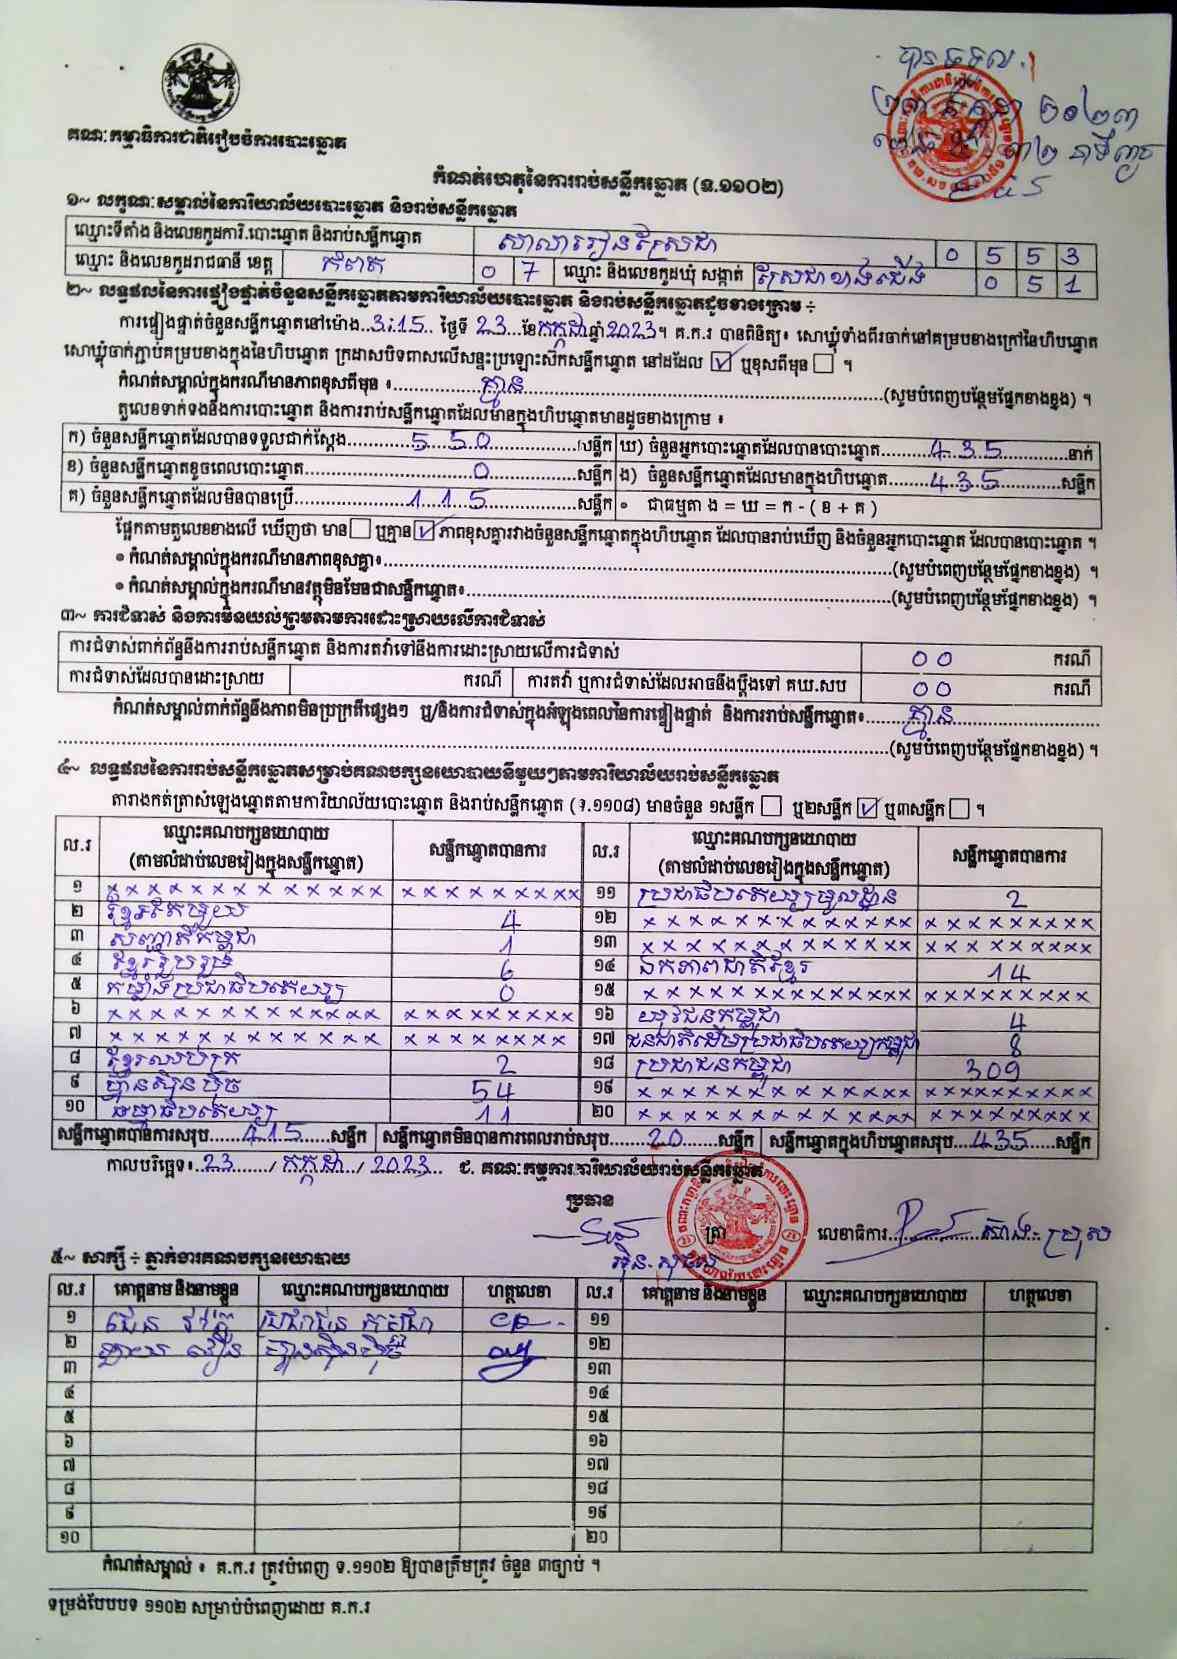 គណៈកម្មាធិការជាតិរៀបចំការបោះឆ្នោត
បានទទួល
កំណត់ហេតុនៃការរាប់សន្លឹកឆ្នោត (ទ.១១០២)
១~ លក្ខណៈសម្គាល់នៃការិយាល័យបោះឆ្នោត និងរាប់សន្លឹកឆ្នោត
ឈ្មោះទីតាំង និងលេខកូដការិ.បោះឆ្នោត និងរាប់សន្លឹកឆ្នោត សាលារៀនស្រែជា 0 5 5 3
ឈ្មោះ និងលេខកូដរាជធានី ខេត្ត កំពត 0 7 ឈ្មោះ និងលេខកូដឃុំ សង្កាត់ ស្រែជាខាងជើង 0 5 1
២~ លទ្ធផលនៃការផ្ទៀងផ្ទាត់ចំនួនសន្លឹកឆ្នោតតាមការិយាល័យបោះឆ្នោត និងរាប់សន្លឹកឆ្នោតដូចខាងក្រោម ÷
ការផ្ទៀងផ្ទាត់ចំនួនសន្លឹកឆ្នោតនៅម៉ោង..3:15.. ថ្ងៃទី 23...ខែកក្កដាឆ្នាំ2023។ គ.ក.រ បានពិនិត្យ៖ សោឃ្លុំទាំងពីរចាក់នៅគម្របខាងក្រៅនៃហិបឆ្នោត
សោឃ្លុំចាក់ភ្ជាប់គម្របខាងក្នុងនៃហិបឆ្នោត ក្រដាសបិទពាសលើសន្ទះប្រឡោះស៊កសន្លឹកឆ្នោត នៅដដែល ☑ ឬខុសពីមុន ☐ ។
កំណត់សម្គាល់ក្នុងករណីមានភាពខុសពីមុន ៖..........គ្មាន..........(សូមបំពេញបន្ថែមផ្នែកខាងខ្នង) ។
តួលេខទាក់ទងនឹងការបោះឆ្នោត និងការរាប់សន្លឹកឆ្នោតដែលមានក្នុងហិបឆ្នោតមានដូចខាងក្រោម ៖
ក) ចំនួនសន្លឹកឆ្នោតដែលបានទទួលជាក់ស្តែង..........550..........សន្លឹក ឃ) ចំនួនអ្នកបោះឆ្នោតដែលបានបោះឆ្នោត..........435..........នាក់
ខ) ចំនួនសន្លឹកឆ្នោតខូចពេលបោះឆ្នោត..........0..........សន្លឹក ង) ចំនួនសន្លឹកឆ្នោតដែលមានក្នុងហិបឆ្នោត..........435..........សន្លឹក
គ) ចំនួនសន្លឹកឆ្នោតដែលមិនបានប្រើ..........115..........សន្លឹក ● ជាធម្មតា ង = ឃ = ក - ( ខ + គ )
ផ្អែកតាមតួលេខខាងលើ ឃើញថា មាន☐ ឬគ្មាន☑ ភាពខុសគ្នារវាងចំនួនសន្លឹកឆ្នោតក្នុងហិបឆ្នោត ដែលបានរាប់ឃើញ និងចំនួនអ្នកបោះឆ្នោត ដែលបានបោះឆ្នោត ។
● កំណត់សម្គាល់ក្នុងករណីមានភាពខុសគ្នា៖..........(សូមបំពេញបន្ថែមផ្នែកខាងខ្នង) ។
● កំណត់សម្គាល់ក្នុងករណីមានវត្ថុមិនមែនជាសន្លឹកឆ្នោត៖..........(សូមបំពេញបន្ថែមផ្នែកខាងខ្នង) ។
៣~ ការជំទាស់ និងការមិនយល់ព្រមតាមការដោះស្រាយលើការជំទាស់
ការជំទាស់ពាក់ព័ន្ធនឹងការរាប់សន្លឹកឆ្នោត និងការតវ៉ាទៅនឹងការដោះស្រាយលើការជំទាស់ 00 ករណី
ការជំទាស់ដែលបានដោះស្រាយ ករណី ការតវ៉ា ឬការជំទាស់ដែលអាចនឹងប្តឹងទៅ គឃ.សប 00 ករណី
កំណត់សម្គាល់ពាក់ព័ន្ធនឹងភាពមិនប្រក្រតីផ្សេងៗ ឬ/និងការជំទាស់ក្នុងអំឡុងពេលនៃការផ្ទៀងផ្ទាត់ និងការរាប់សន្លឹកឆ្នោត៖..........គ្មាន..........
..........(សូមបំពេញបន្ថែមផ្នែកខាងខ្នង) ។
៤~ លទ្ធផលនៃការរាប់សន្លឹកឆ្នោតសម្រាប់គណបក្សនយោបាយនីមួយៗតាមការិយាល័យរាប់សន្លឹកឆ្នោត
តារាងកត់ត្រាសំឡេងឆ្នោតតាមការិយាល័យបោះឆ្នោត និងរាប់សន្លឹកឆ្នោត (ទ.១១០៨) មានចំនួន ១សន្លឹក ☐ ឬ២សន្លឹក ☑ ឬ៣សន្លឹក ☐ ។
ល.រ ឈ្មោះគណបក្សនយោបាយ (តាមលំដាប់លេខរៀងក្នុងសន្លឹកឆ្នោត) សន្លឹកឆ្នោតបានការ ល.រ ឈ្មោះគណបក្សនយោបាយ (តាមលំដាប់លេខរៀងក្នុងសន្លឹកឆ្នោត) សន្លឹកឆ្នោតបានការ
១ x x x x x x x x x x x x x x x x x x x x x x ១១ ប្រជាធិបតេយ្យមូលដ្ឋាន 2
២ ខ្មែរតែមួយ 4 ១២ x x x x x x x x x x x x x x x x x x x x x x
៣ សញ្ជាតិកម្ពុជា 1 ១៣ x x x x x x x x x x x x x x x x x x x x x x
៤ ខ្មែររួបរួម 6 ១៤ ឯកភាពជាតិខ្មែរ 14
៥ កម្លាំងប្រជាធិបតេយ្យ 0 ១៥ x x x x x x x x x x x x x x x x x x x x x x
៦ x x x x x x x x x x x x x x x x x x x x x x ១៦ យុវជនកម្ពុជា 4
៧ x x x x x x x x x x x x x x x x x x x x x ១៧ ជនជាតិដើមប្រជាធិបតេយ្យកម្ពុជា 8
៨ ខ្មែរឈប់ក្រ 2 ១៨ ប្រជាជនកម្ពុជា 309
៩ ហ្វ៊ុនស៊ិនប៉ិច 54 ១៩ x x x x x x x x x x x x x x x x x x x x x x
១០ ធម្មាធិបតេយ្យ 11 ២០ x x x x x x x x x x x x x x x x x x x x x x
សន្លឹកឆ្នោតបានការសរុប.......415......សន្លឹក សន្លឹកឆ្នោតមិនបានការពេលរាប់សរុប.......20.......សន្លឹក សន្លឹកឆ្នោតក្នុងហិបឆ្នោតសរុប....435.....សន្លឹក
កាលបរិច្ឆេទ៖..23....../ កក្កដា../ 2023... ជ. គណៈកម្មការការិយាល័យរាប់សន្លឹកឆ្នោត
ប្រធាន
ត្រា លេខាធិការ....................
៥~ សាក្សី ÷ ភ្នាក់ងារគណបក្សនយោបាយ
ល.រ គោត្តនាម និងនាមខ្លួន ឈ្មោះគណបក្សនយោបាយ ហត្ថលេខា ល.រ គោត្តនាម និងនាមខ្លួន ឈ្មោះគណបក្សនយោបាយ ហត្ថលេខា
១ ប្រជាជន កម្ពុជា ១១
២ ហ្វ៊ុនស៊ិនប៉ិច ១២
៣ ១៣
៤ ១៤
៥ ១៥
៦ ១៦
៧ ១៧
៨ ១៨
៩ ១៩
១០ ២០
កំណត់សម្គាល់ ៖ គ.ក.រ ត្រូវបំពេញ ទ.១១០២ ឱ្យបានត្រឹមត្រូវ ចំនួន ៣ច្បាប់ ។
ទម្រង់បែបបទ ១១០២ សម្រាប់បំពេញដោយ គ.ក.រ